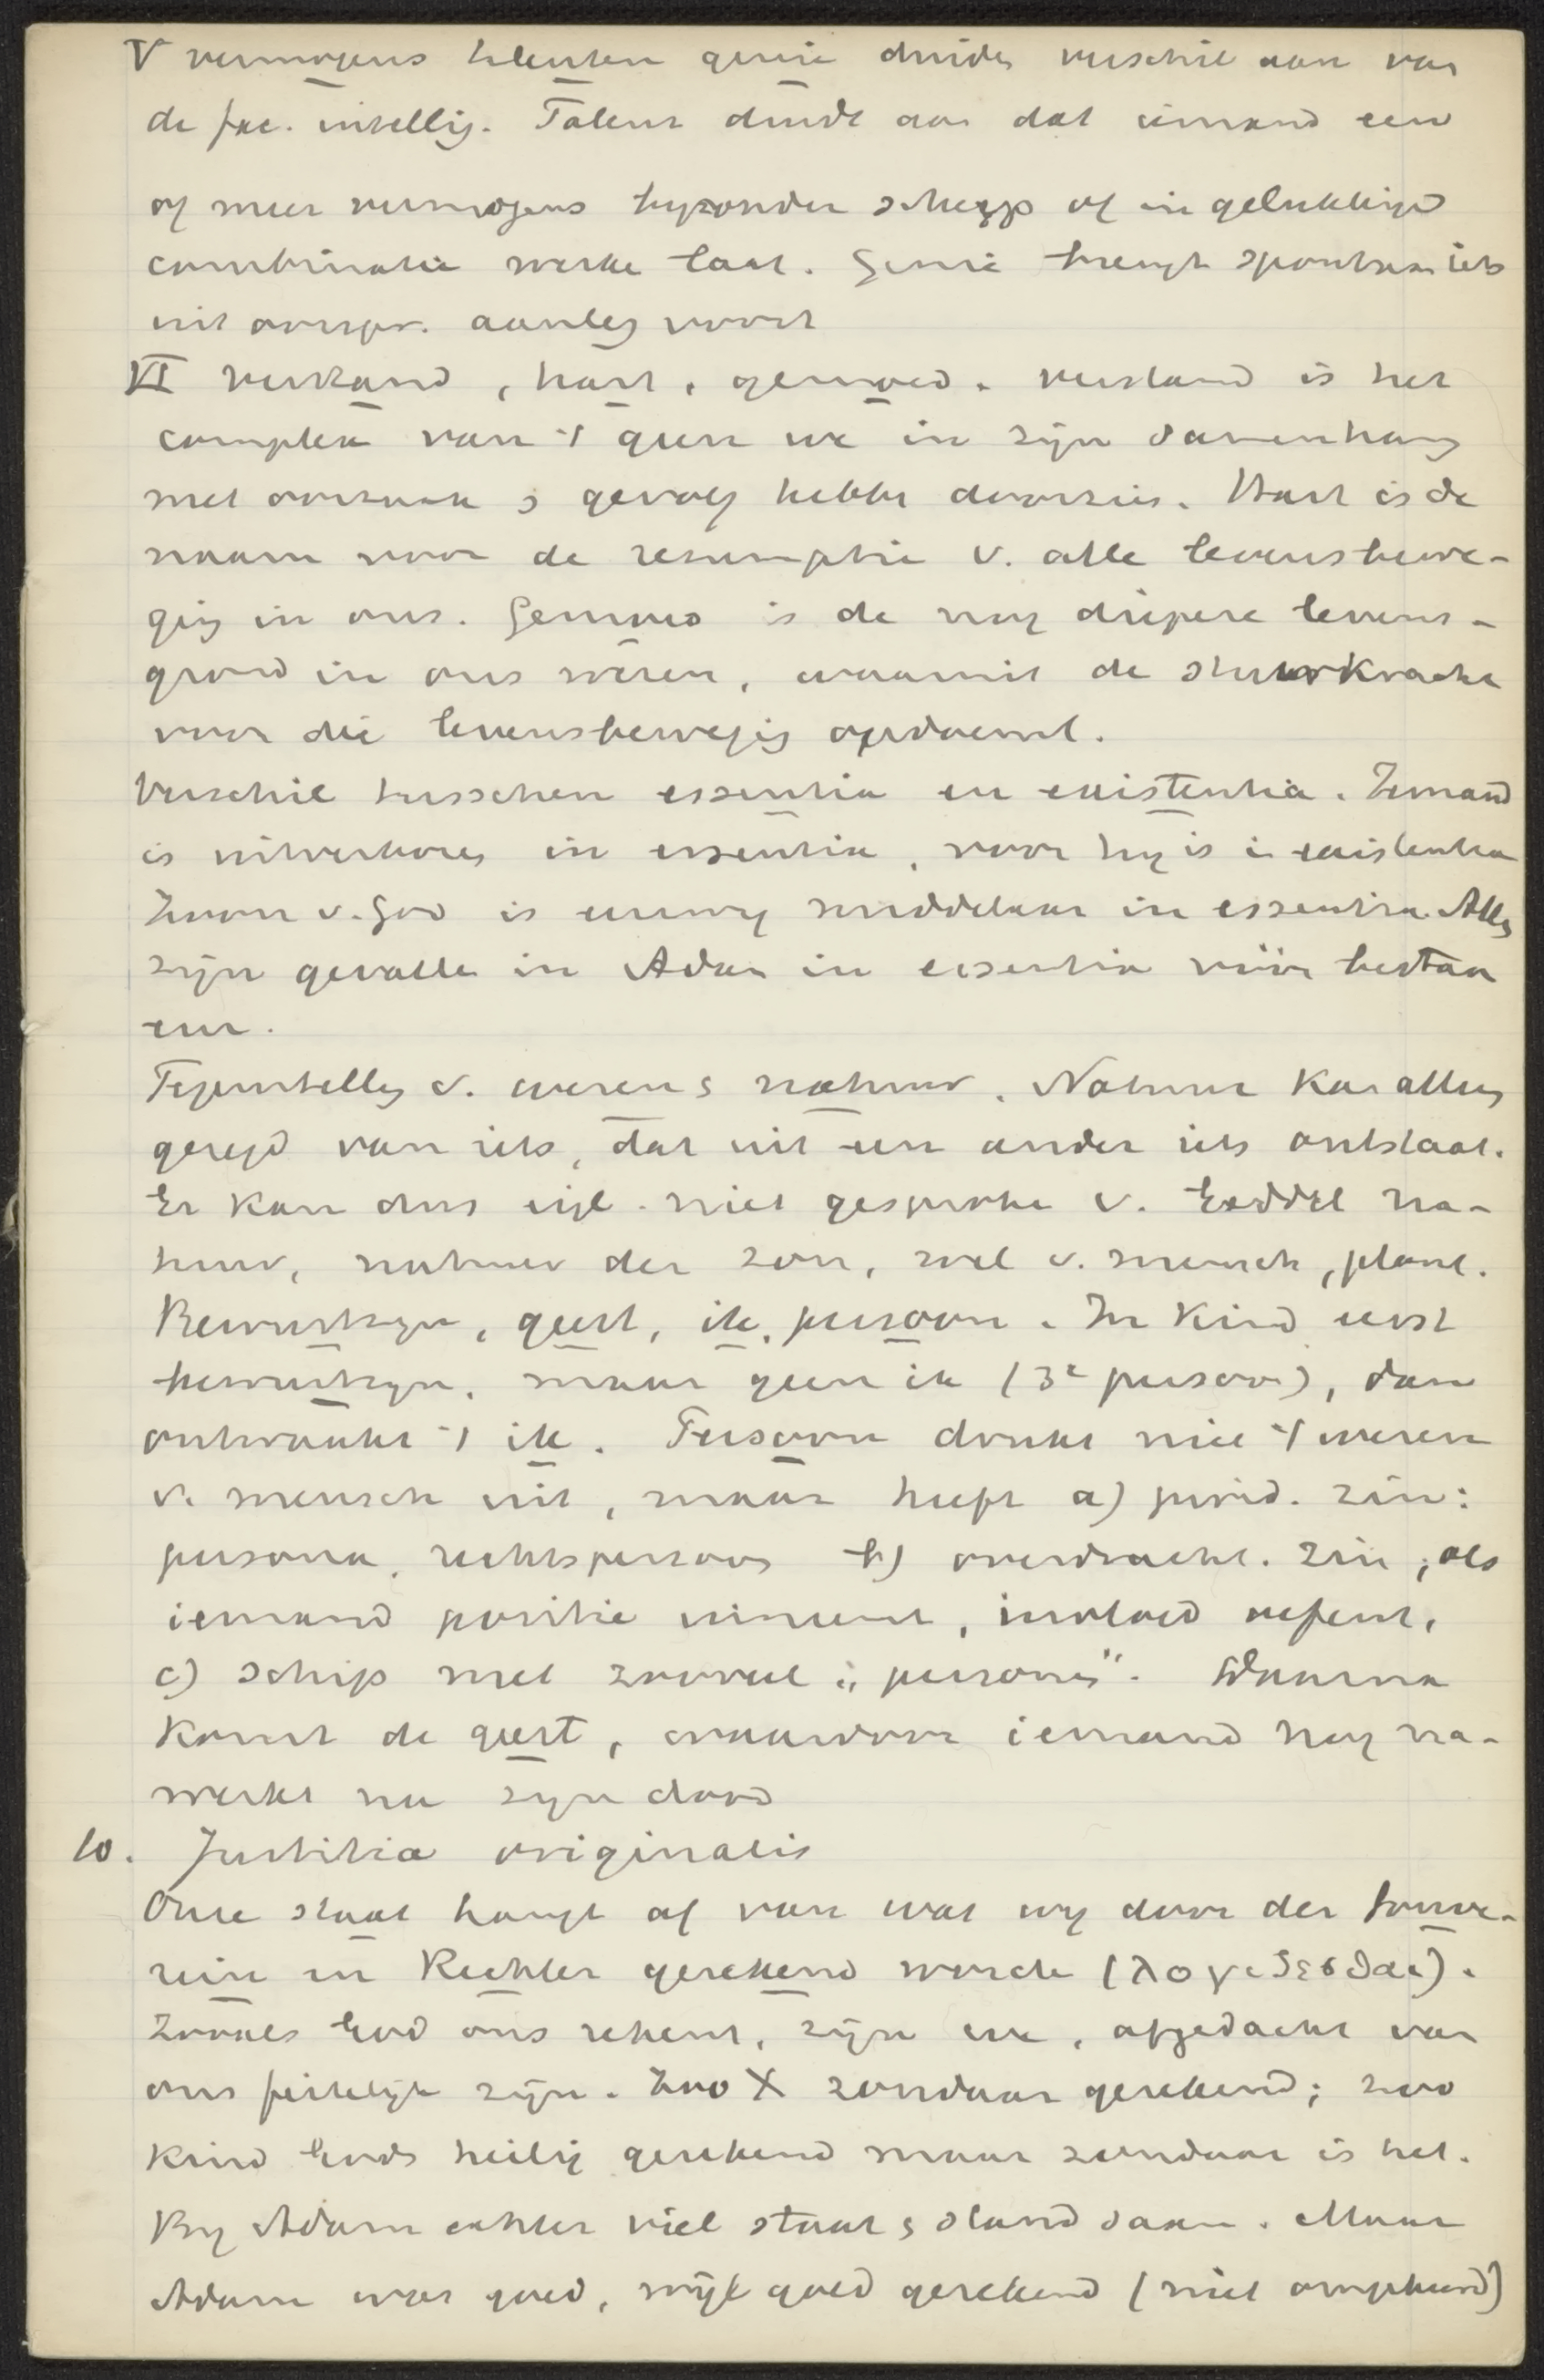 V vermogens talenten genie duide verschil aan van
de fac. intellig. Talent duidt aan dat iemand een
of meer vermogens byzonder scherp of in gelukkige
combinatie werke laat. Genie brengt spontaan iets
uit oorspr. aanleg voort
VI verstand, hart, gemoed. verstand is het
complex van 't geen we in zijn samenhang
met oorzaak & gevolg hebbe doorzien. Hart is de
naam voor de resumptie v. alle levensbewe-
gig in ons. Gemoed is de nog diepere levens-
grond in ons wezen, waaruit de stuwkracht
voor die levensbewegig opdoemt.
Verschil tusschen essentia en existentia. Iemand
is uitverkore in essentia, voor hy is in existentia
Zoon v. God is eeuwig middelaar in essentia. Alle
zijn gevalle in Adam in essentia vóór bestaa
een.
Tegenstellig v. wezen & natuur. Natuur kan allee
gezegd van iets, dat uit een ander iets ontstaat.
Er kan dus eigl. niet gesproke v. Godd na-
tuur, natuur der zon, wel v. mensch, plant.
Bewustzyn, geest, ik, persoon. In kind eerst
bewustzyn, maar geen ik (3e persoon), dan
ontwaakt 't ik. Persoon drukt niet 't wezen
v. mensch uit, maar heeft a) jurid. zin:
persona, rechtspersoon b) overdracht. zin; als
iemand positie inneemt, invloed oefent,
c) schip met zooveel „persone". Daarna
komt de geest, waardoor iemand nog na-
werkt na zyn dood
10. Justitia originalis
Onze staat hangt af van wat wy door den Souve-
rein en Rechter gerekend worde (λογιζεσθαι).
Zooals God ons rekent, zijn we, afgedacht van
ons feitelijk zijn. Zoo X zondaar gerekend; zoo
kind Gods heilig gerekend maar zondaar is het.
By Adam echter viel staat & stand saam. Maar
Adam was goed, wijl goed gerekend (niet omgekeerd)